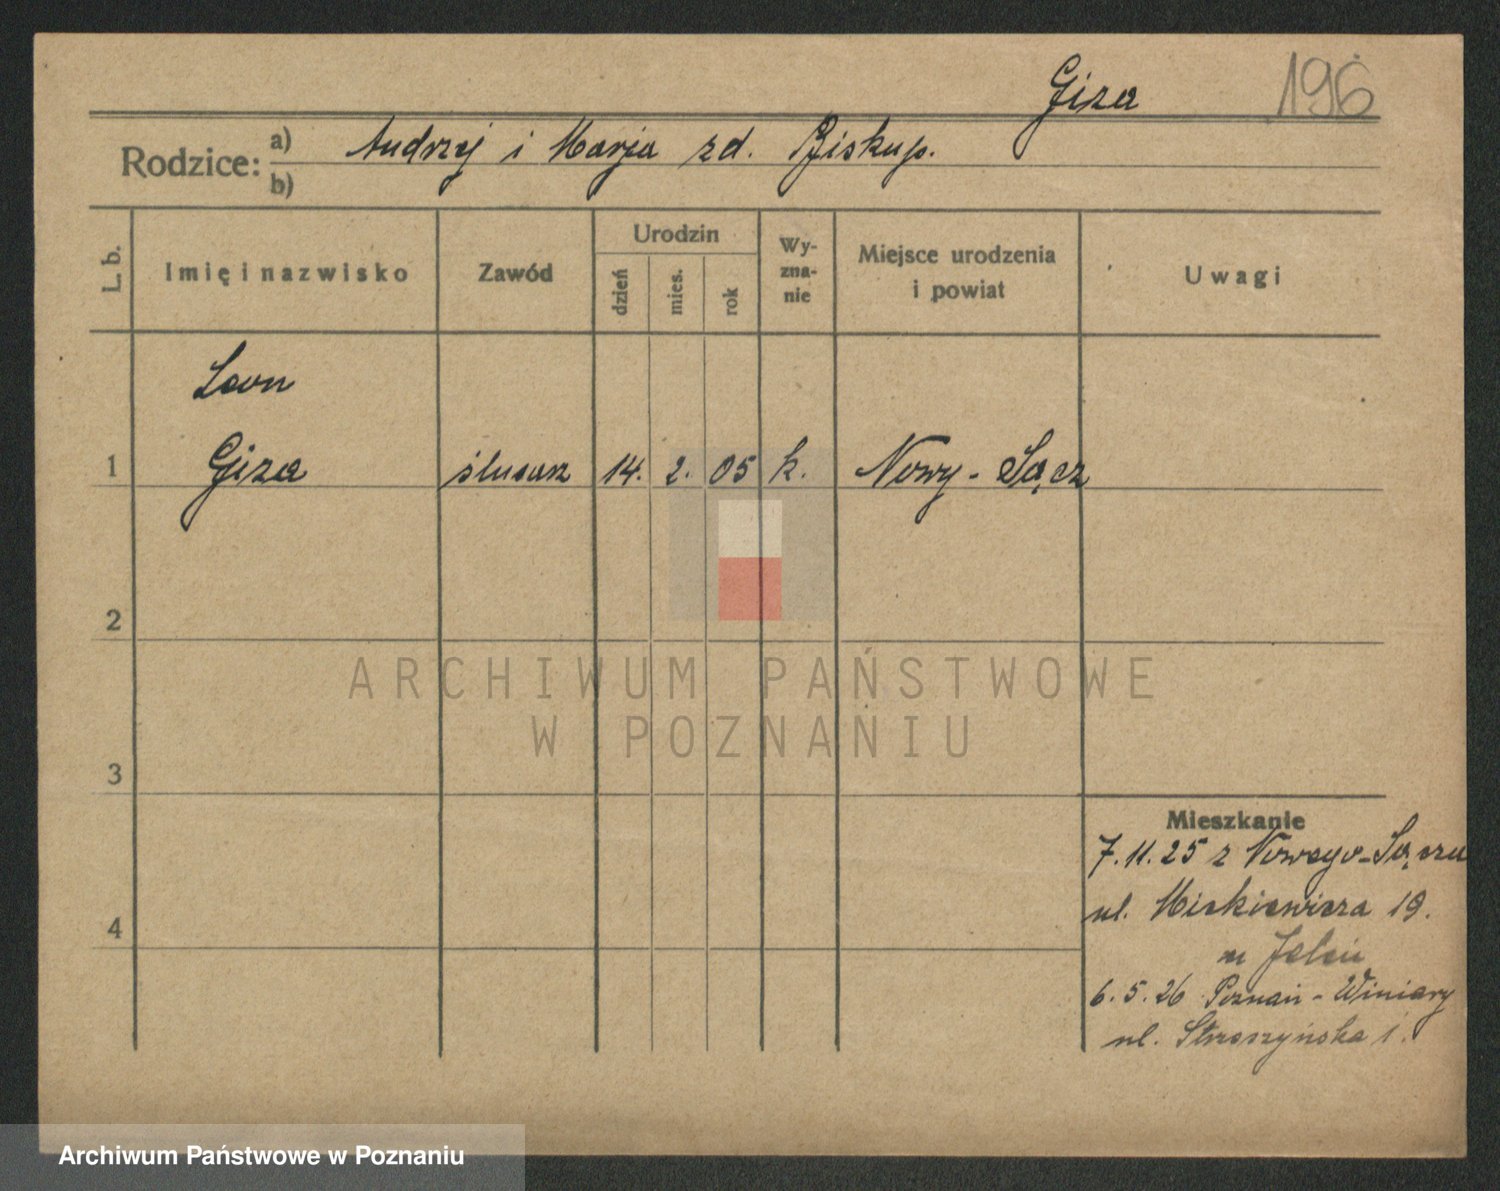 Giza 196
Rodzice: a) Andrzej i Marja zd. Biskup.
b)
L. b.
Imię i nazwisko
Zawód
Urodzin
dzień
mies.
rok
Wy-
zna-
nie
Miejsce urodzenia
i powiat
Uwagi
Leon
1 Giza ślusarz 14. 2. 05 k. Nowy-Sącz
2
ARCHIWUM PAŃSTWOWE
W POZNANIU
3
Mieszkanie
7.11.25 z Nowego-Sącza
ul. Mickiewicza 19.
4
u Jeleń
6.5.26 Poznań-Winiary
ul. Strzeszyńska 1.
Archiwum Państwowe w Poznaniu